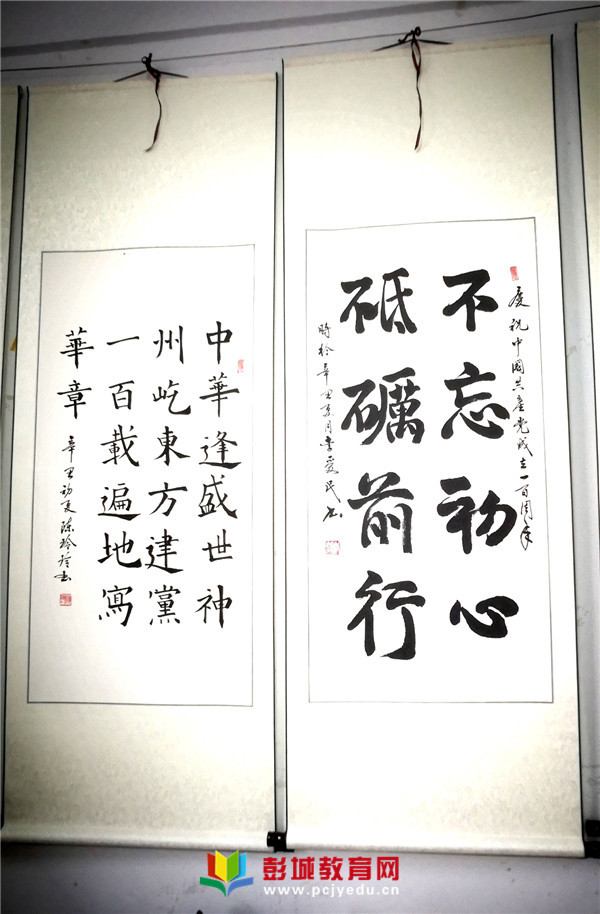 慶祝中國共產党成立一百周年
不忘初心
砥礪前行
時於辛丑夏月李愛民书
中華逢盛世神
州屹東方建黨
一百載遍地寫
華章
辛丑初夏陈玲
彭城教育网
www.pcjyedu.cn